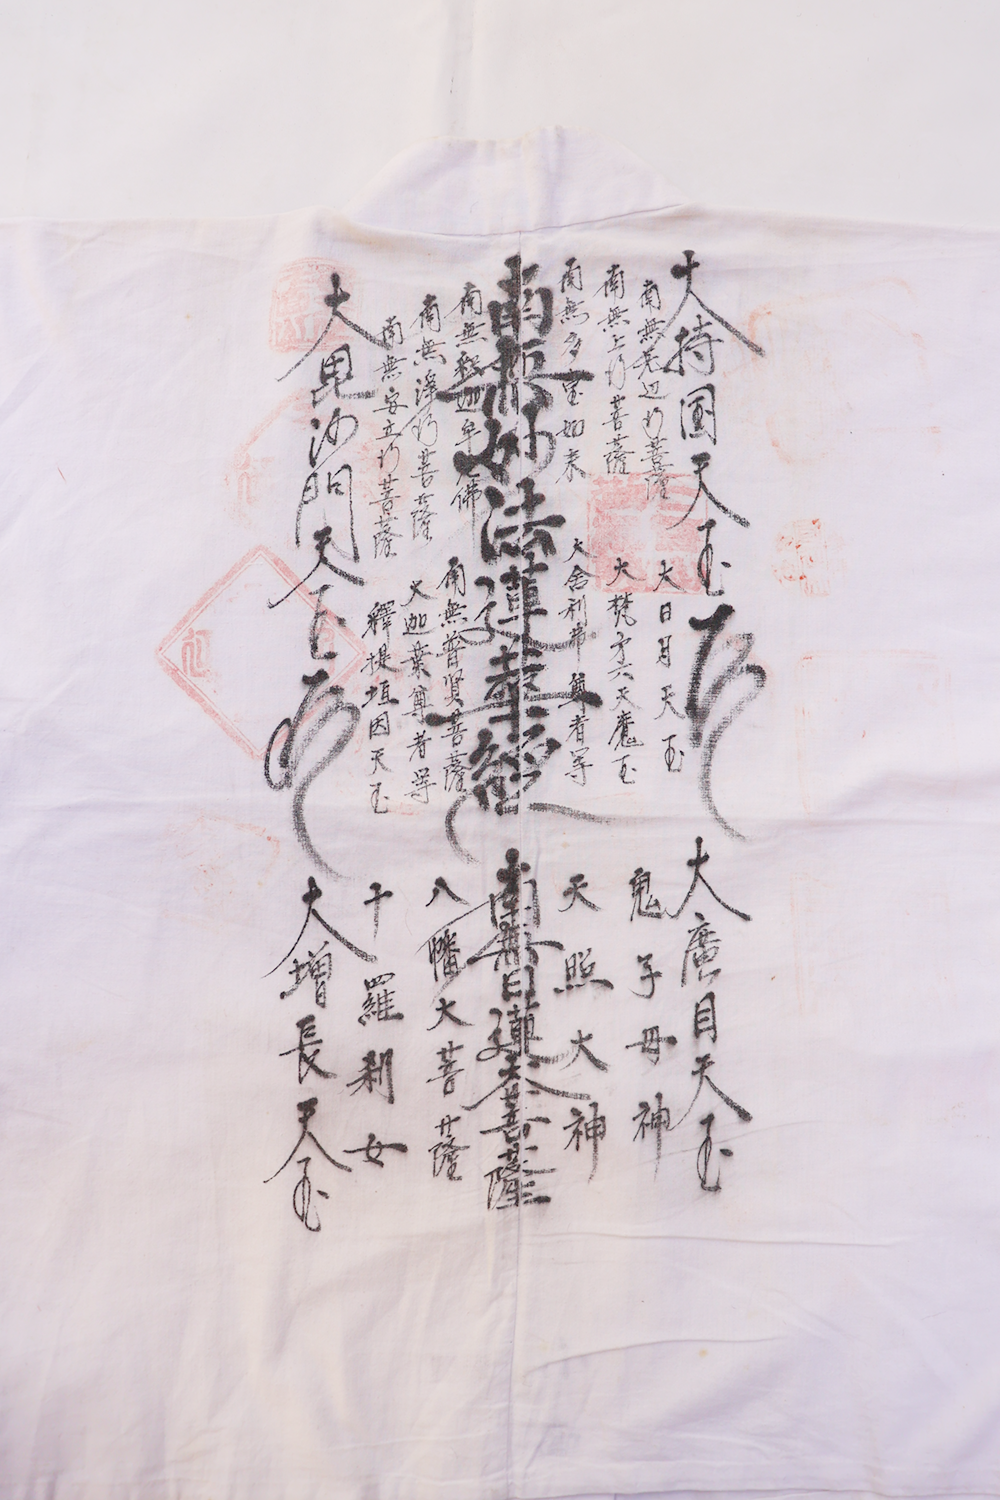 大持国天玉
南無無辺行菩薩
南無上行菩薩
南無多宝如来
南無妙法蓮華経
南無釈迦牟尼佛
南無浄行菩薩
南無安立行菩薩
大毘沙門天玉
大日月天玉
大梵第六天魔玉
大舎利弗尊者等
南無普賢菩薩
大迦葉尊者等
釋提垣因天玉
大廣目天玉
鬼子母神
天照大神
南無日蓮大菩薩
八幡大菩薩
十羅刹女
大増長天玉